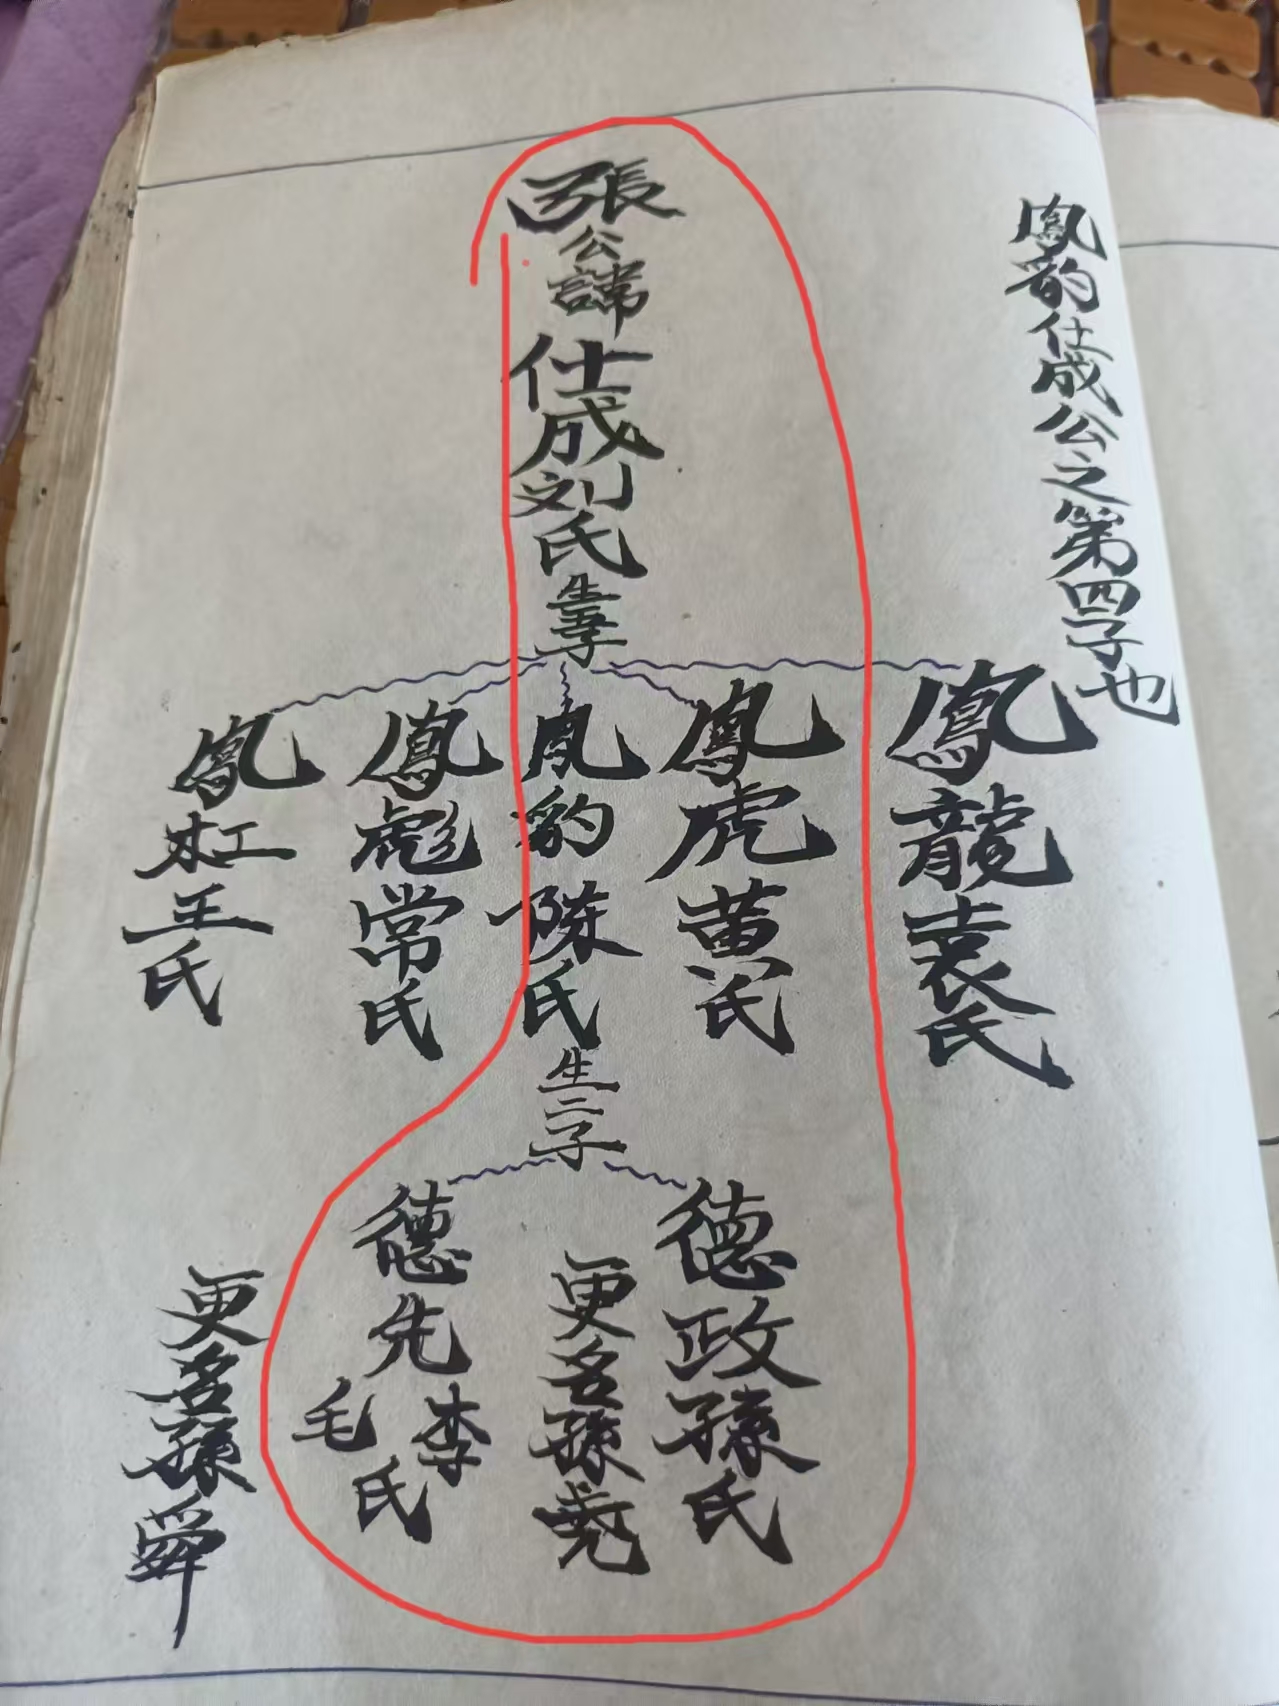 鳳豹仕成公之第四子也
張公諱仕成刘氏
生五子
鳳龍袁氏
鳳虎黄氏
凤豹陈氏
鳳彪常氏
鳳杠王氏
生二子
德政孫氏
更名孫尧
德先李毛氏
更名孫舜